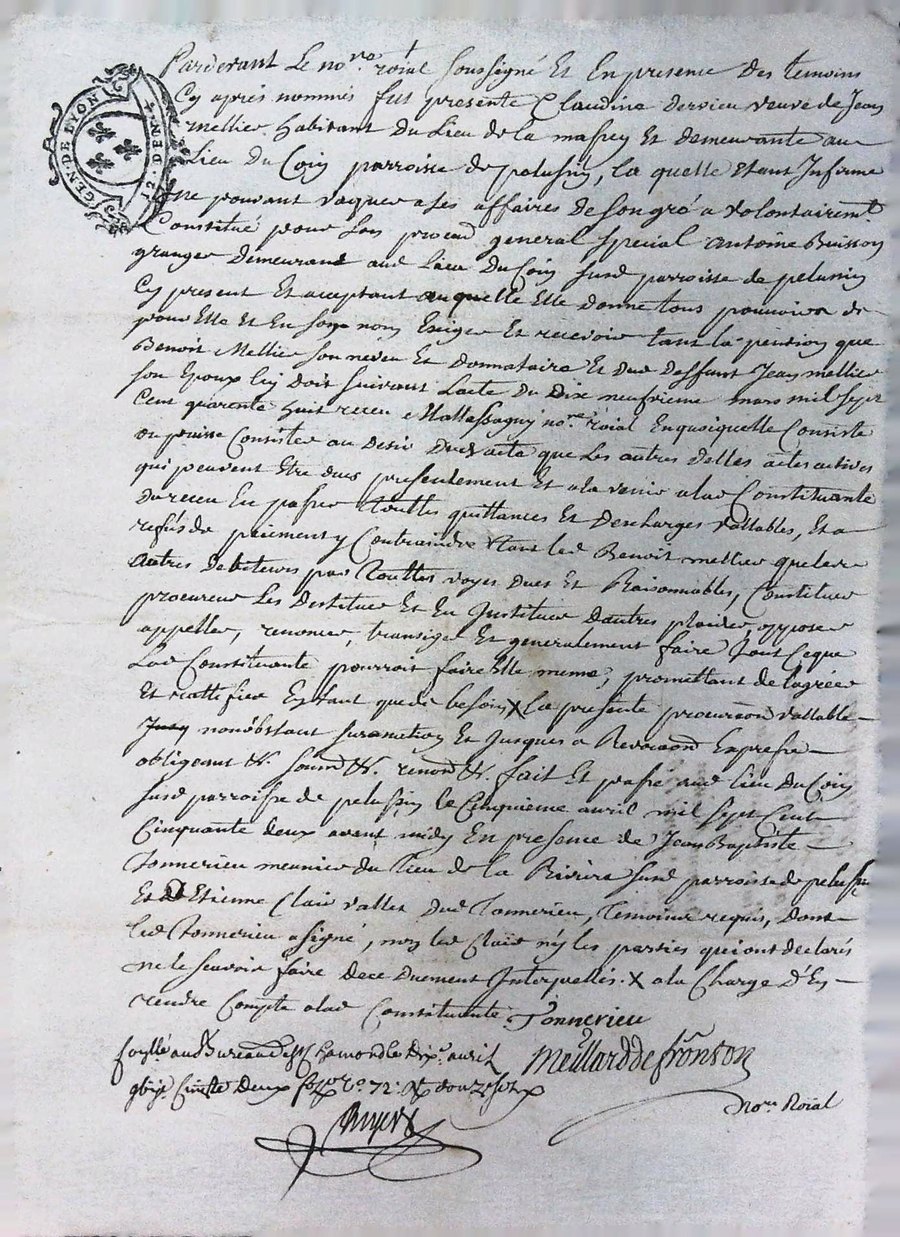 GEN·DE LYON
12 DEN·4
Parderant Le no.re roial soussigné Et En presence Des temoins
Cy aprés nommés fut presente Claudine dervieu veuve de Jean
Mellier habitant Du Lieu de la et demeurante au
Lieu Du Coin parroisse de pelussin, la quelle Etant Infirme
Ne pouvant vaquer a ses affaires de son gré a volontairemt
Constitué pour son procur general special Antoine Buisson
granger Demeurant aud Lieu Du Coin susd parroisse de pelussin
Cy present Et aceptant auquelle Elle donne tous pouvoirs de
pour Elle Et En son nom Exiger Et recevoir tant la pension que
Benoit Mellier son neveu Et Donnataire Et dud deffunt Jean mellier
son Epoux luy doit suivant L'acte du Dix neufvieme mars mil sept
Cent quarente huit receu no.re roial En quoiquelle Consiste
ou puisse Consister au desir Dud acte que Les autres dettes actives
qui peuvent Etre dues presentement Et a la venir a lad Constituante
Du receu En passer Touttes quittances Et descharges vallables, Et a
refus de paiement y Contraindre tant led Benoit mellier que
autres debiteurs par Touttes voyes dues Et Raisonnables, Constituer
procureur Les Destituer Et En Instituer D'autres plaider, opposer
appeller, renoncer, transiger Et generalement faire Tout Ceque
Lad Constituante pourroit faire Elle meme, promettant de l'agréer
Et rattifier En tant que de besoin X La presente procuraon vallable
nonobstant surannation Et Jusques a Revocaon Expresse
obligeant &. soumet &. renonc &. fait Et passé aud lieu Du Coin
susd parroisse de pelussin le Cinquieme avril mil sept Cent
Cinquante deux avant midy En presence de Jean Baptiste
Tonnerieu meunier du Lieu de la Riviere susd parroisse de pelussin
Et Etienne Clair vallet dud Tonnerieu, Temoins requis, Dont
led Tonnerieu a signé, non led Clair n'y les parties qui ont declarés
ne le scavoir faire de ce Duement Interpellés. X a la Charge D'En
rendre Compte a lad Constituante Tonnerieu
aud Bureau de St Chamond le Dix avril
Deux 72
Meillard de fronton
No.re Roial